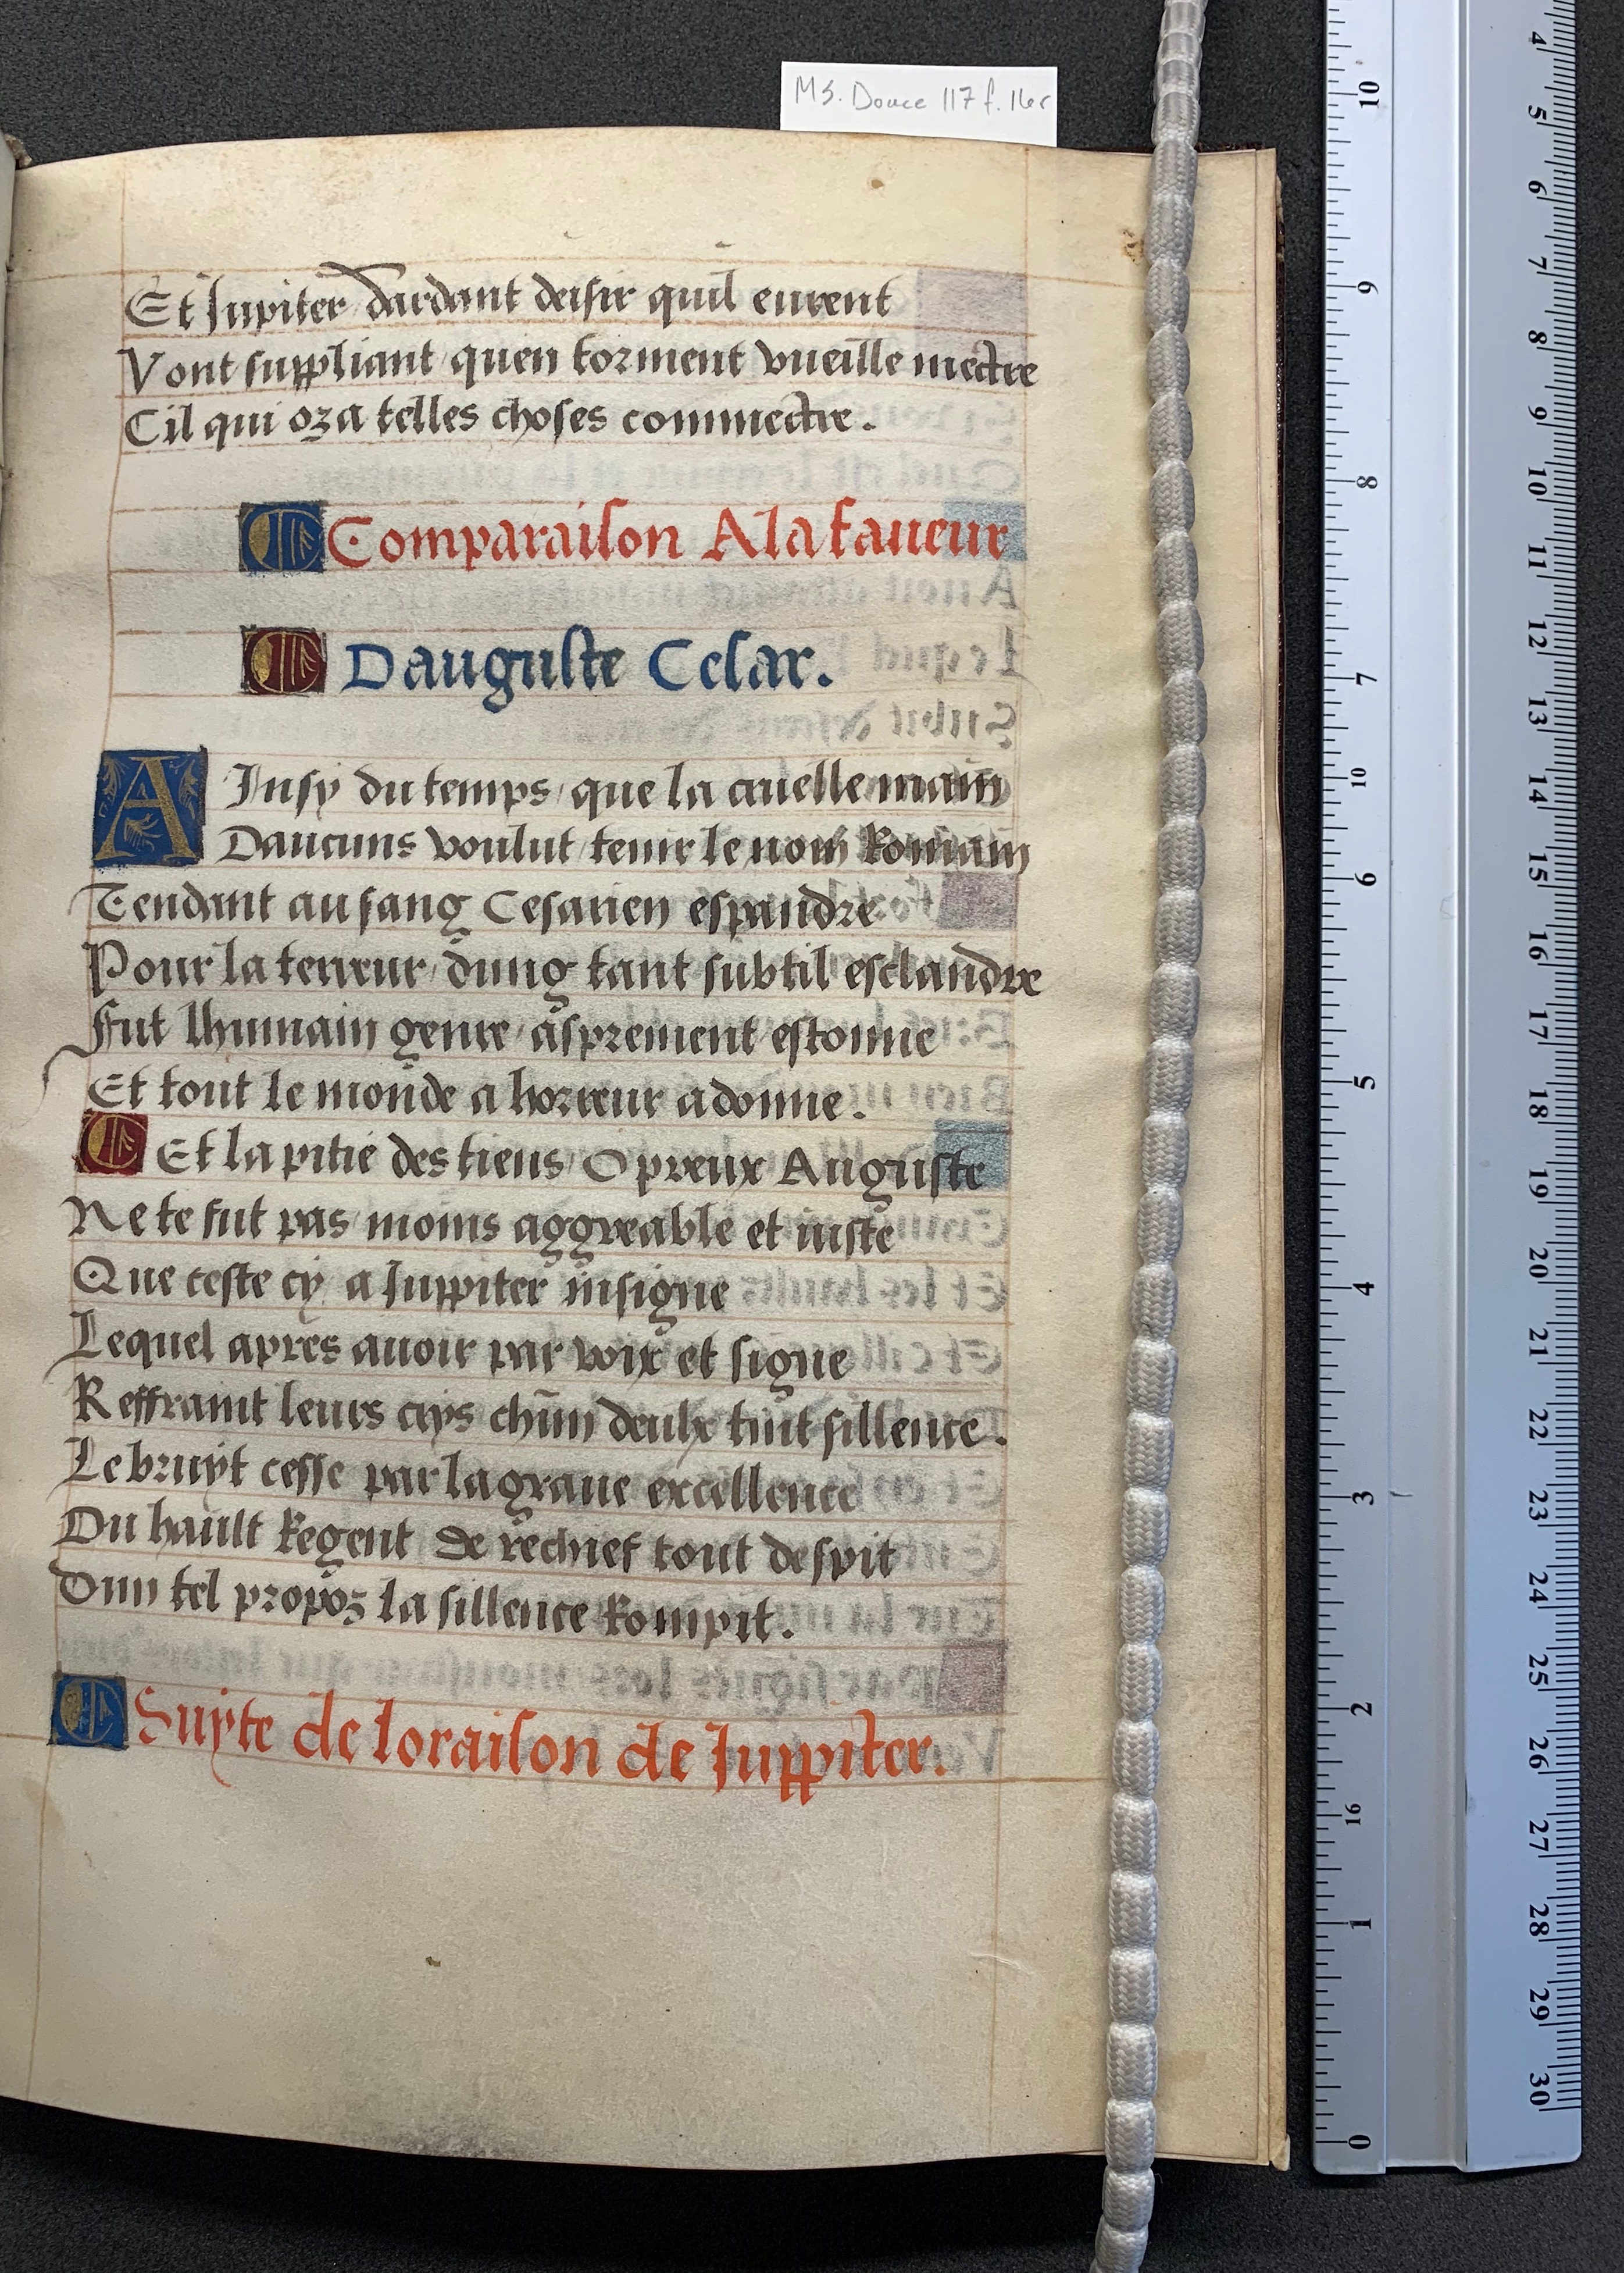 MS. Douce 117 f. 16r
Et Jupiter dardant deisir quil eurent
Vont suppliant quen torment vueille mectre
Cil qui oza telles choses commectre.
Comparaison A la faueur
Dauguste Cesar.
AInsy du temps, que la cruelle main
Daucuns voulut tenir le nom Romain
Tendant au sang Cesarien espandre
Pour la terreur dung tant subtil esclandre
Fut lhumain genre asprement estonne
Et tout le monde a horreur adonne.
Et la pitie des tiens O preux Auguste
Ne te fut pas moins aggreable et iuste
Que ceste cy a Juppiter insigne
Lequel apres auoir par voix et signe
Reffraint leurs crys chūn deulx tint sillence.
Le bruyt cesse par la graue excellence
Du hault Regent de rechief tout despit
Dun tel propoz la sillence Rompit.
Suyte de loraison de Juppiter.
10
9
8
7
6
5
4
3
2
1
0
10
16
4
5
6
7
8
9
10
11
12
13
14
15
16
17
18
19
20
21
22
23
24
25
26
27
28
29
30